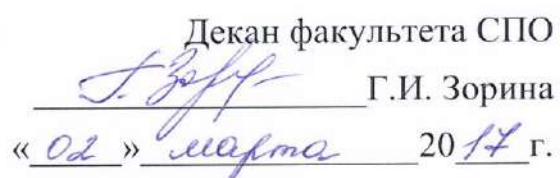 Декан факультета СПО
Г.И. Зорина
«02» марта 2017 г.